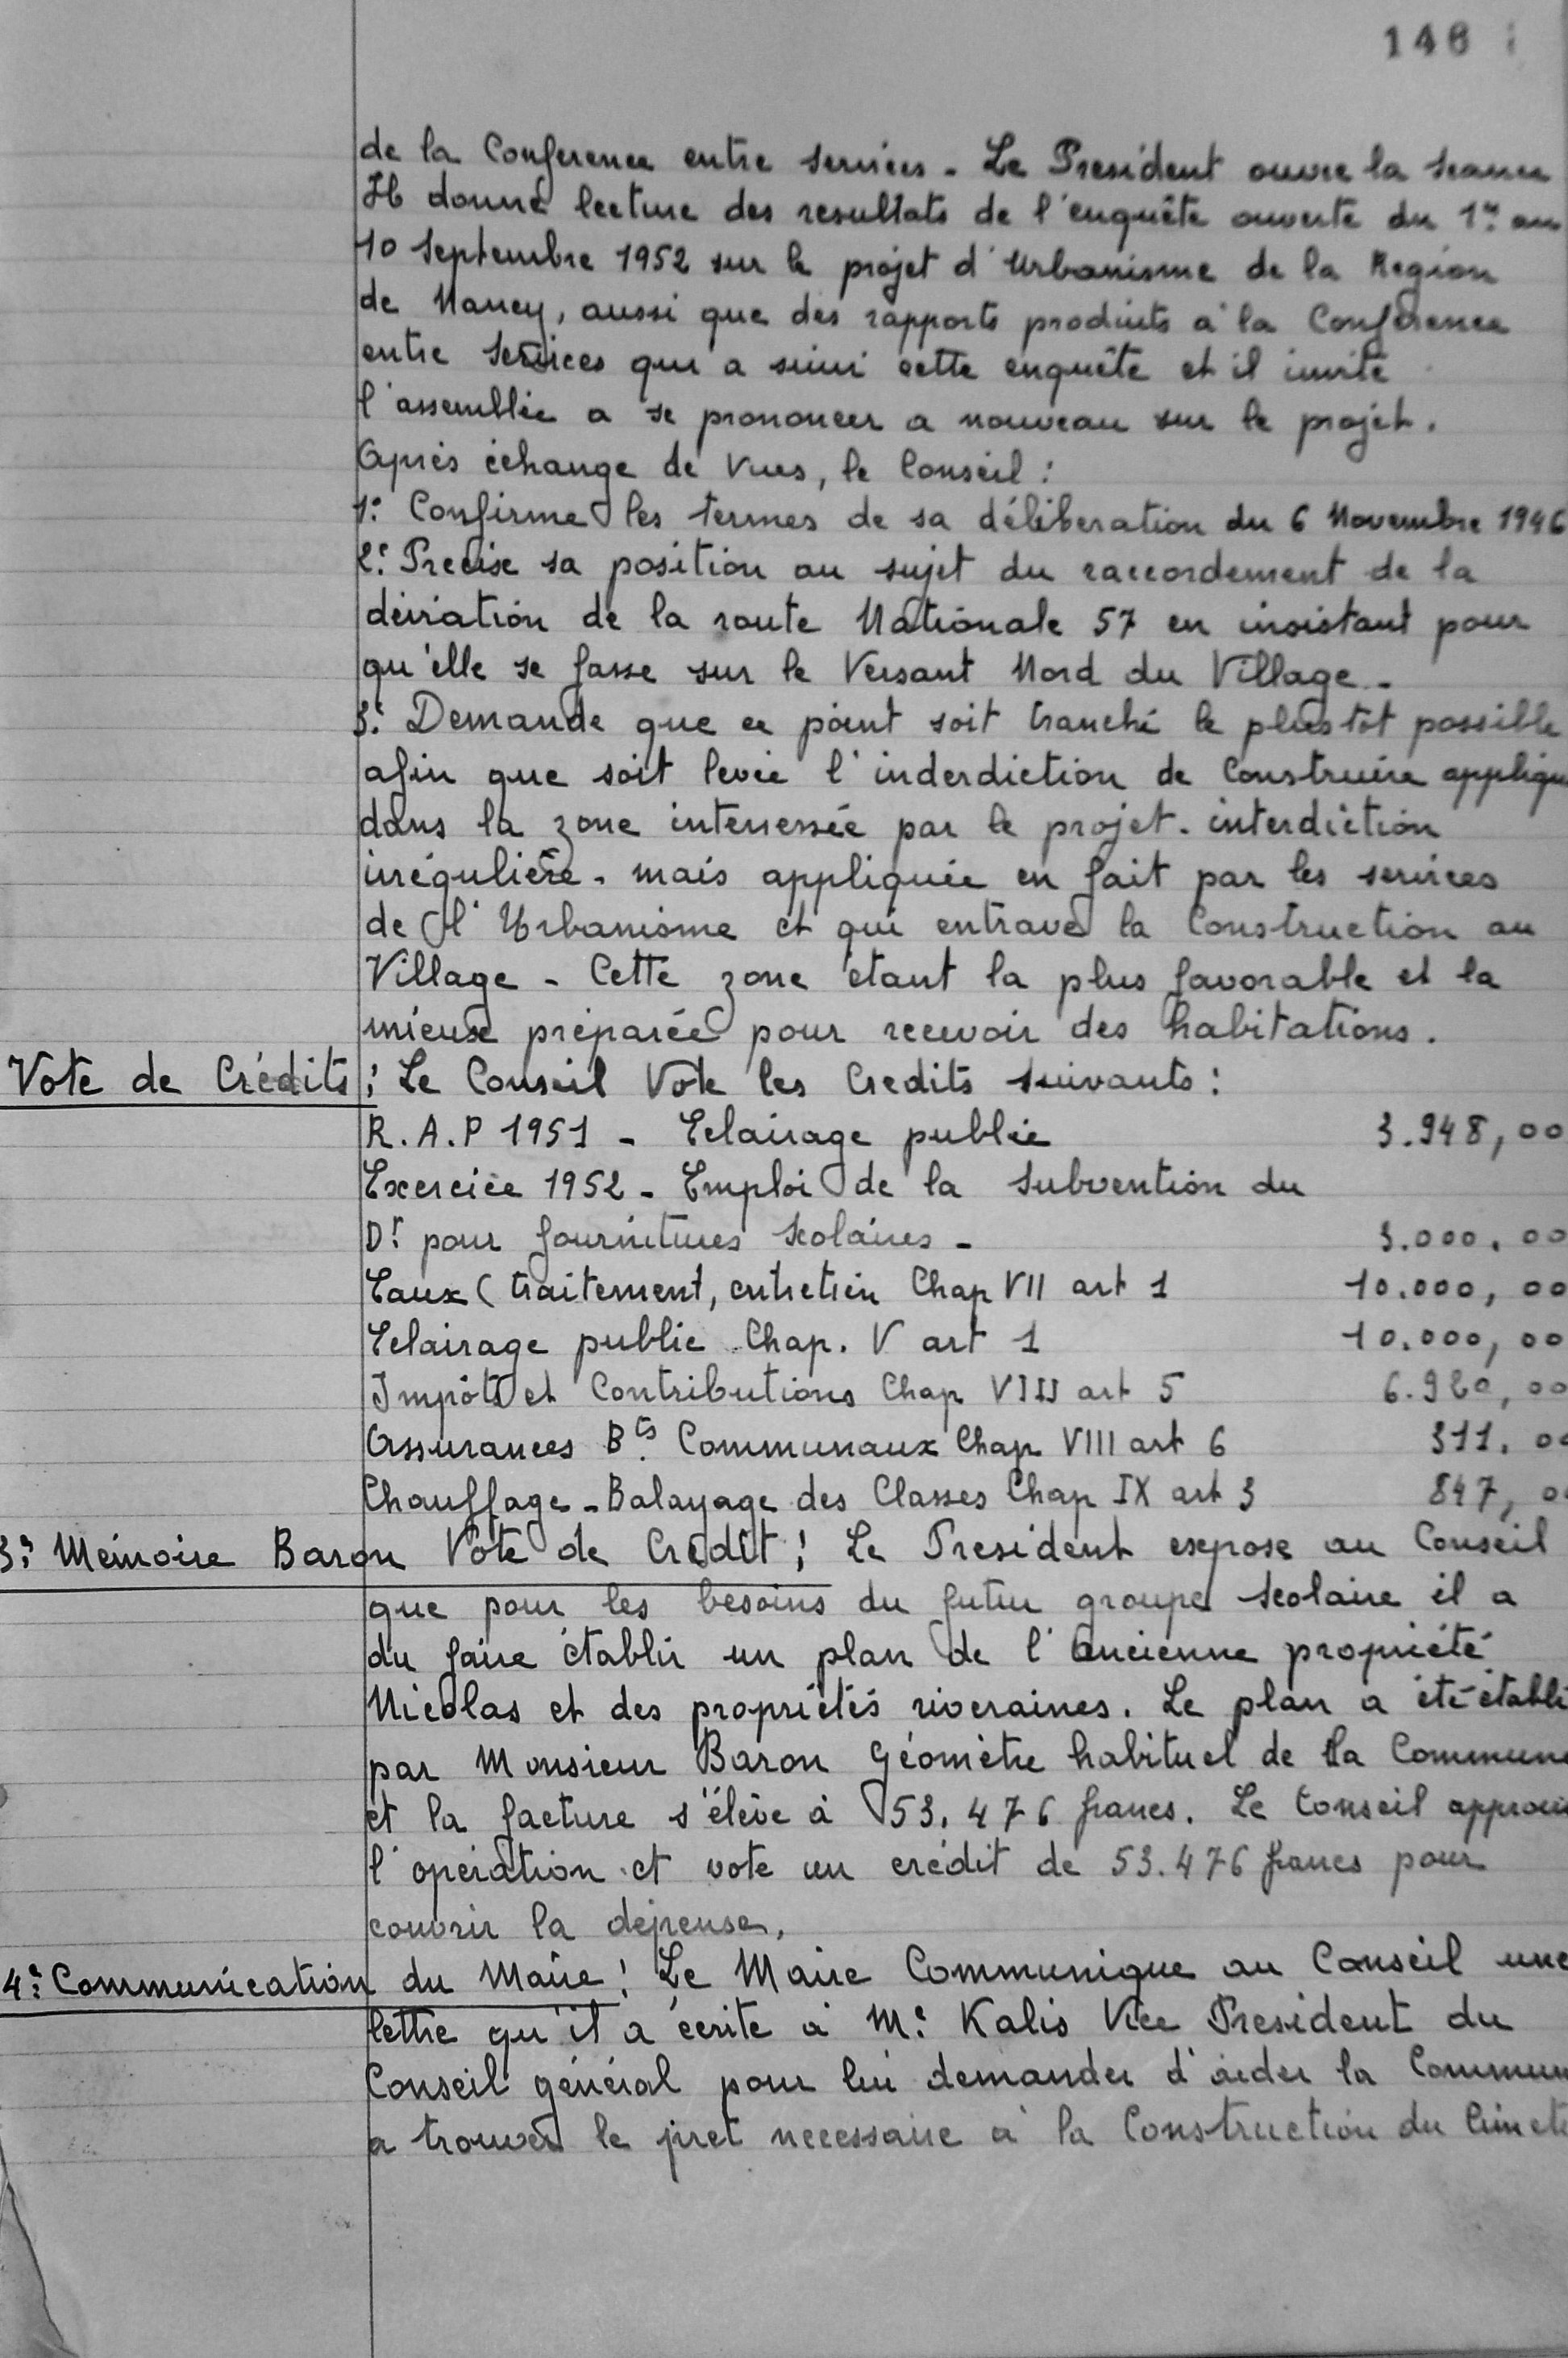 146
de la Conference entre services - Le President ouvre la seance
Il donne lecture des resultats de l'enquête ouverte du 1er au
10 Septembre 1952 sur le projet d'Urbanisme de la Region
de Nancy, aussi que des rapports produits à la Conference
entre services qui a suivi cette enquête et il invite
l'assemblée a se prononcer a nouveau sur le projet.
Après échange de vues, le Conseil :
1: Confirme les termes de sa déliberation du 6 Novembre 1946
2: Precise sa position au sujet du raccordement de la
déviation de la route Nationale 57 en insistant pour
qu'elle se fasse sur le Versant Nord du Village -
3: Demande que ce point soit tranché le plus tôt possible
afin que soit levée l'inderdiction de Construire appliqu
dans la zone interressée par le projet - interdiction
irrégulière - mais appliquée en fait par les services
de l'Urbanisme et qui entrave la Construction au
Village - Cette zone étant la plus favorable et la
mieux préparée pour recevoir des habitations.
Vote de Crédits : Le Conseil Vote les Credits suivants :
R.A.P 1951 - Eclairage public 3.948,00
Exercice 1952 - Emploi de la Subvention du
Dr pour fournitures scolaires - 3.000.00
Eaux (traitement, entretien Chap VII art 1 10.000,00
Eclairage public Chap. V art 1 10.000,00
Impôts et Contributions Chap VIII art 5 6.920,00
Assurances Bts Communaux Chap VIII art 6 311.00
Chauffage - Balayage des Classes Chap IX art 3 847,00
3: Mémoire Baron Vote de Crédit : Le President expose au Conseil
que pour les besoins du futur groupe scolaire il a
du faire établir un plan de l'ancienne propriété
Nicolas et des propriétés riveraines. Le plan a été établi
par Monsieur Baron Géomètre habituel de la Commune
et la facture s'élève à 53.476 francs. Le Conseil approuv
l'opération et vote un crédit de 53.476 francs pour
couvrir la dépense.
4: Communication du Maire : Le Maire Communique au Conseil une
lettre qu'il a écrite à Mr Kalis Vice President du
Conseil général pour lui demander d'aider la Commun
a trouver le pret necessaire à la Construction du Cimeti